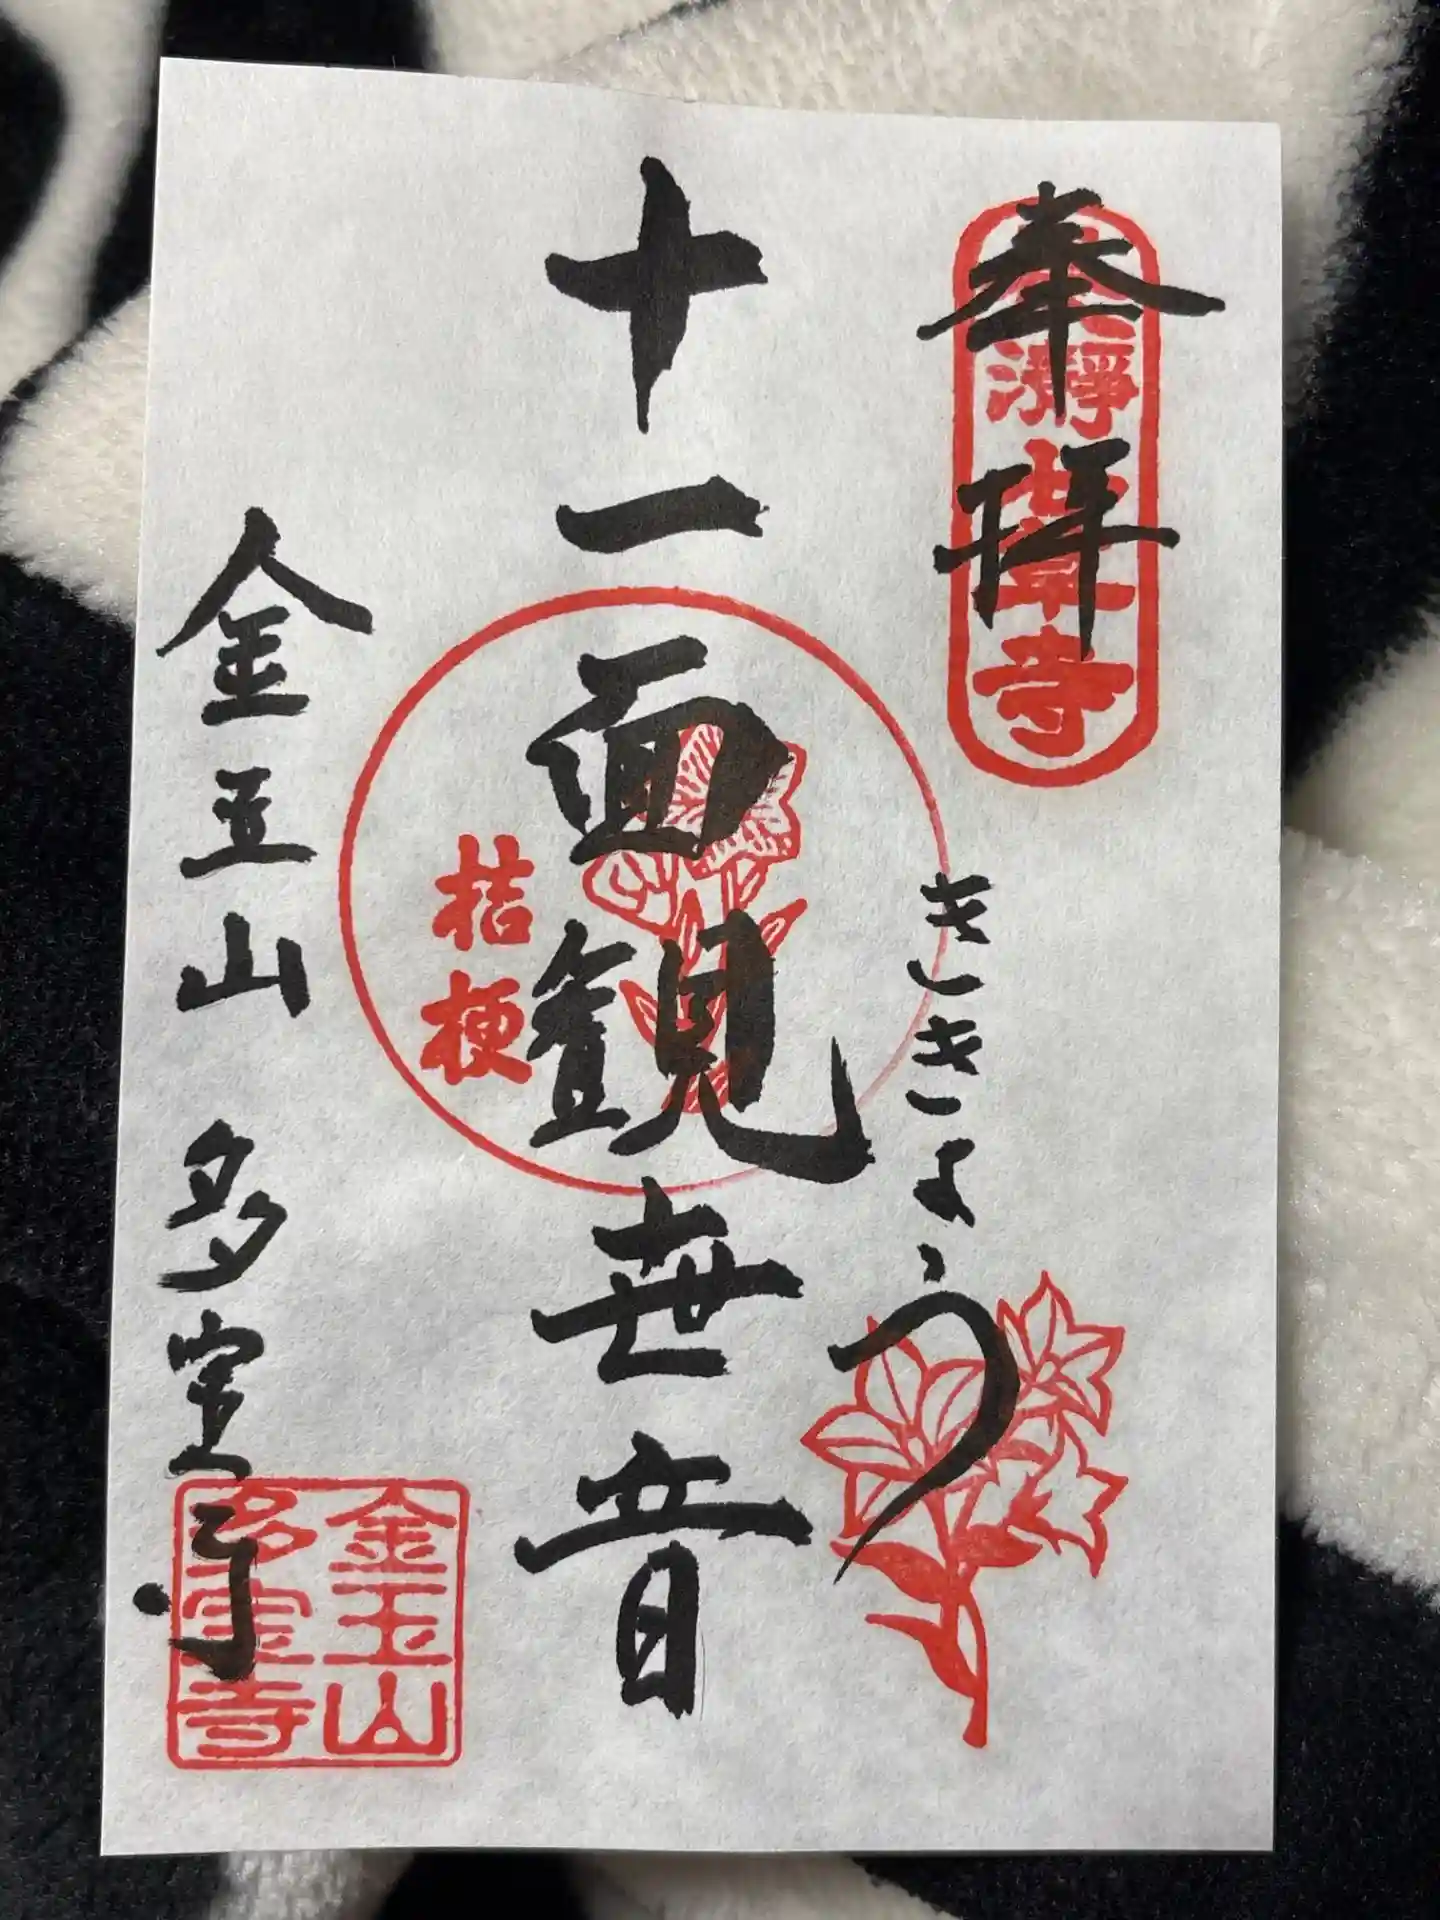 奉拝
長瀞七草寺
ききょう
十一面観世音
桔梗
金玉山 多宝寺
金玉山
多宝寺